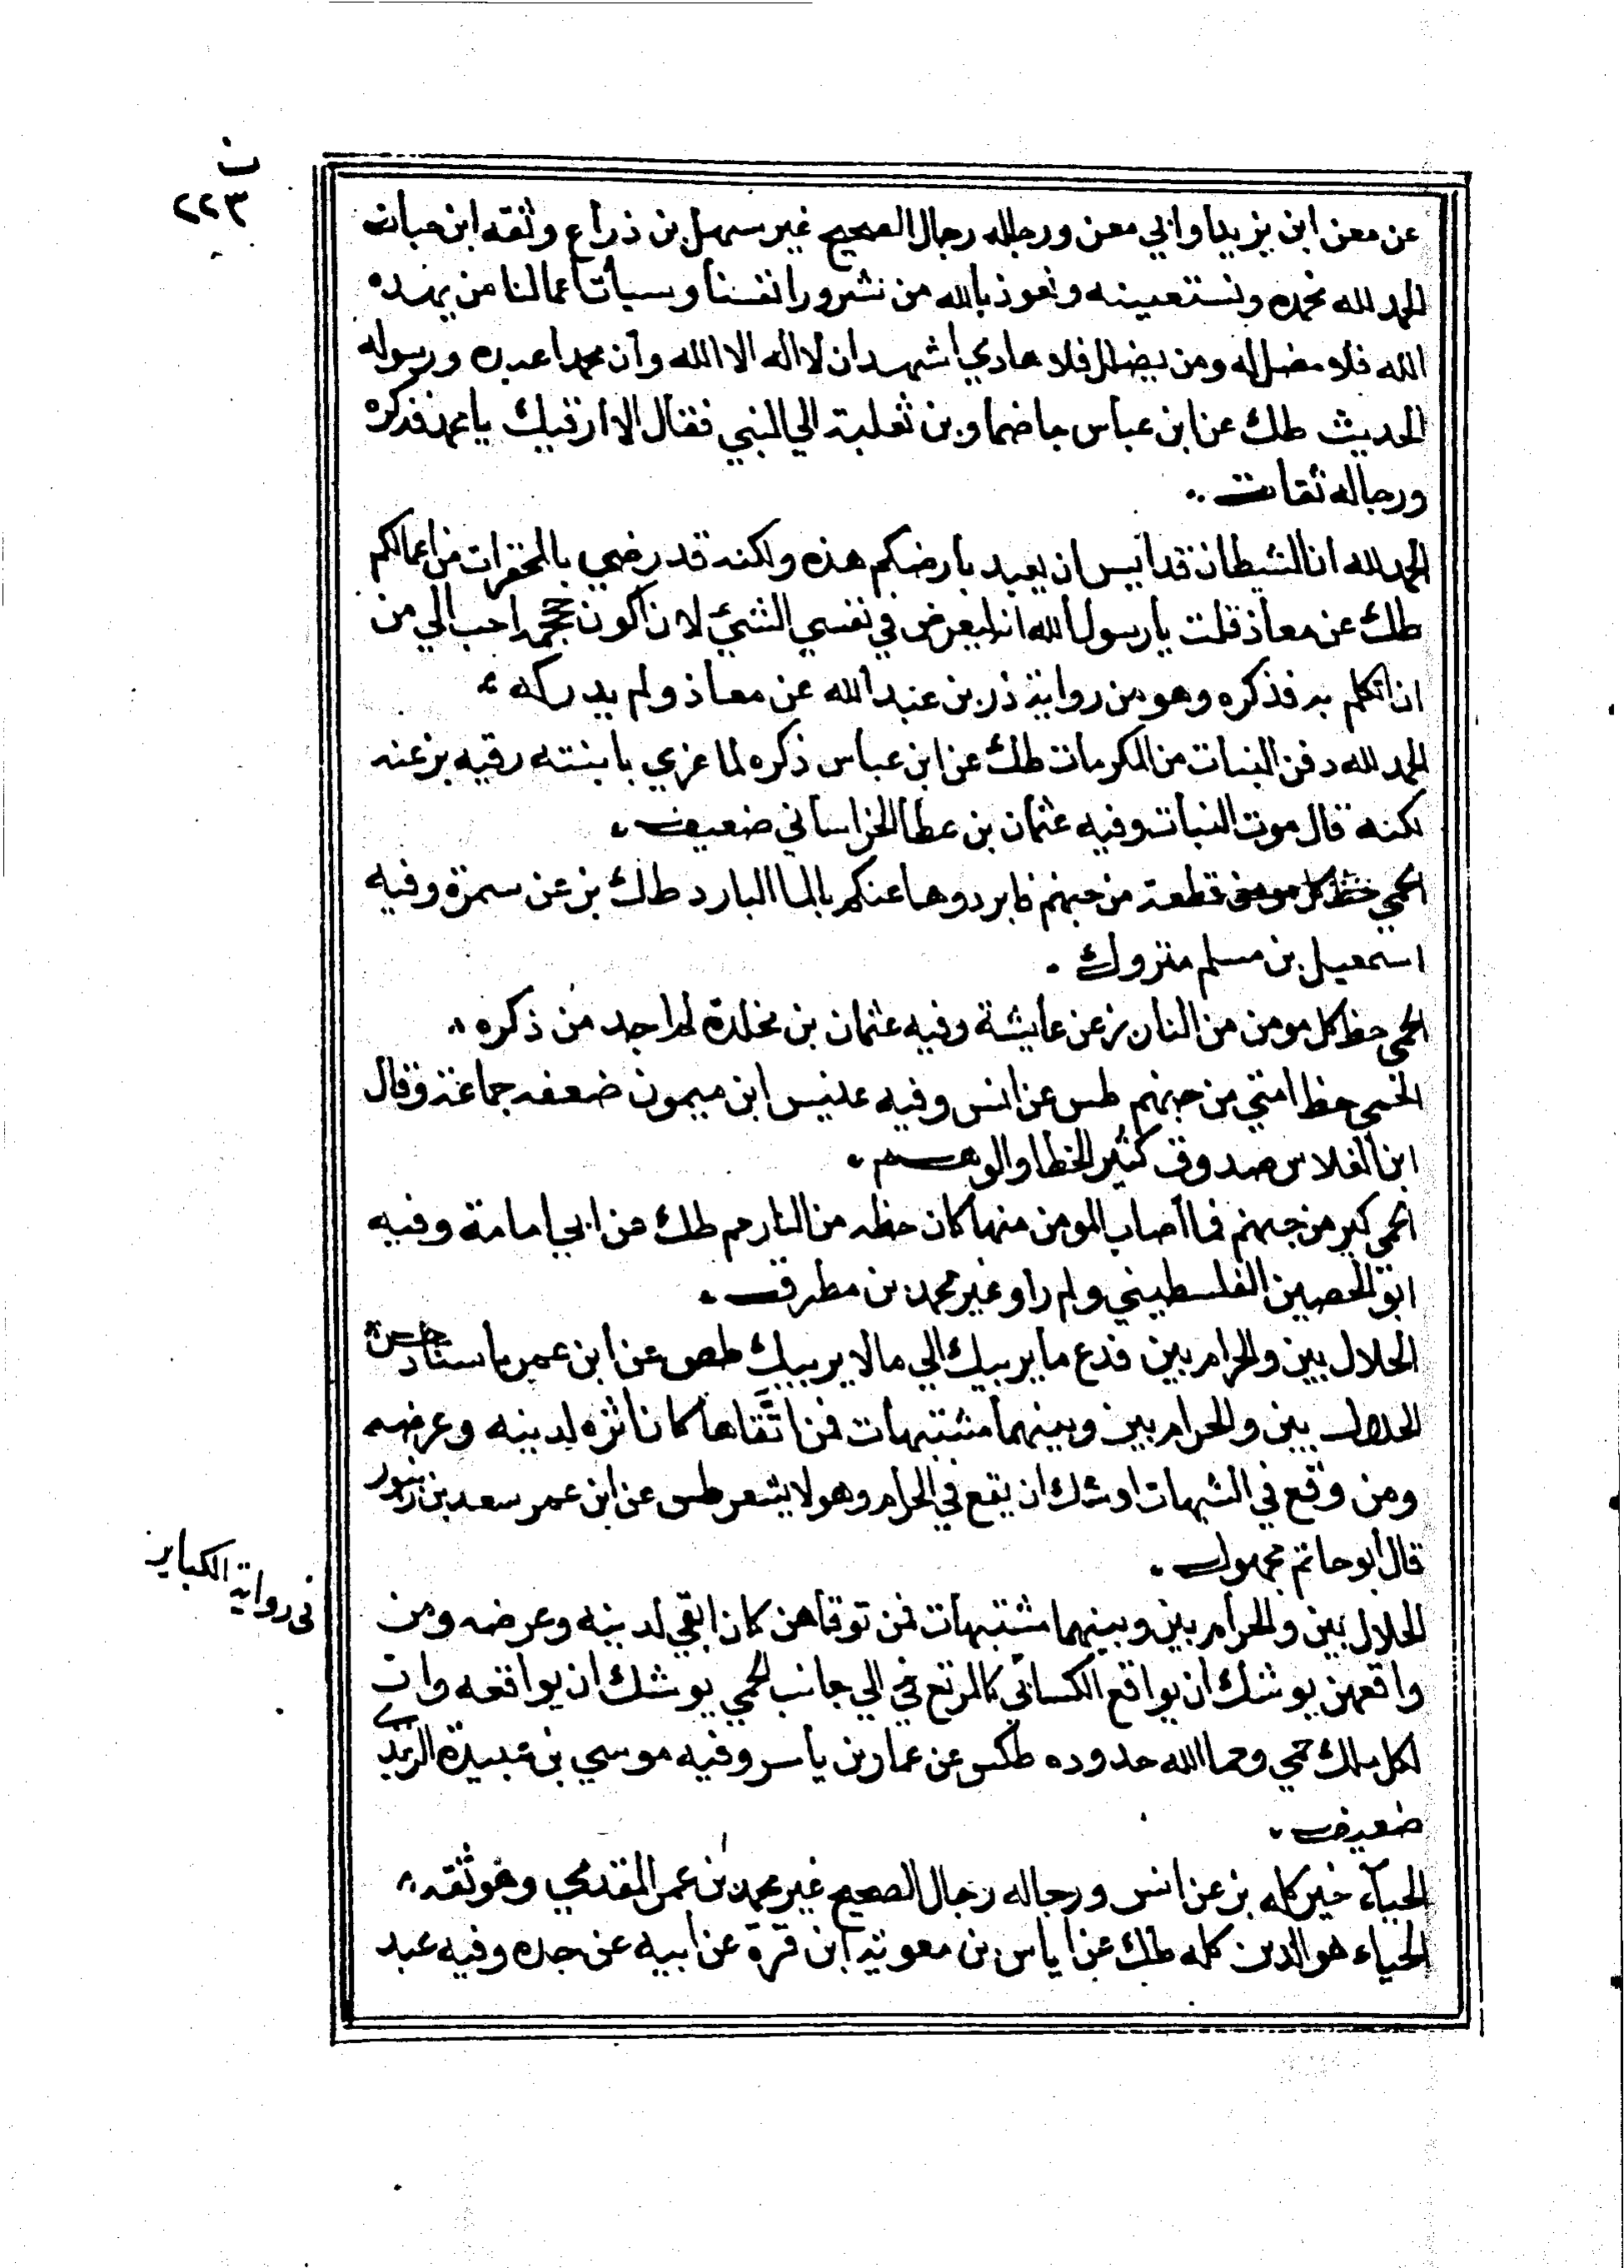 ن
٢٢٣
عن معن ابن يزيد او ابي معن ورجاله رجال الصحيح غير سهل بن ذراع وثقه ابن حبان
الحمد لله نحمده ونستعينه ونعوذ بالله من شرور انفسنا وسيات اعمالنا من يهده
الله فلا مضل له ومن يضلل فلا هادي اشهد ان لا اله الا الله وان محمدا عبده ورسوله
الحديث طك عن ابن عباس جا ضماد بن ثعلبة الي النبي فقال الا ارقيك يا محمد فذكره
ورجاله ثقات
الحمد لله ان الشيطان قد ايس ان يعبد بارضكم هذه ولكنه قد رضي بالمحقرات من اعمالكم
طك عن معاذ قلت يا رسول الله انه ليعرض في نفسي الشيء لان اكون حممه احب الي من
ان اتكلم به فذكره وهو من رواية ذر بن عبد الله عن معاذ ولم يدركه
الحمد لله دفن البنات من المكرمات طك عن ابن عباس ذكره لما عزي بابنته رقيه بز عنه
لكنه قال موت البنات وفيه عثمان بن عطا الخراساني ضعيف
الحمي حظ كل مومن قطعة من جهنم فابردوها عنكم بالما البارد طك بز عن سمرة وفيه
اسمعيل بن مسلم متروك
الحمى حظ كل مومن من النار بز عن عايشة وفيه عثمان بن مخلدة لم اجد من ذكره
الحمى حظ امتي من جهنم طس عن انس وفيه عنبس ابن ميمون ضعفه جماعة وقال
ابن الفلاس صدوق كثير الخطا والوهم
الحمي كير من جهنم فما اصاب المومن منها كان حظه من النار حم طك عن ابي امامة وفيه
ابو الحصين الفلسطيني ولم راو غير محمد بن مطرف
الحلال بين والحرام بين فدع ما يريبك الي ما لا يريبك طص عن ابن عمر باسناد حسن
الحلال بين والحرام بين وبينهما مشتبهات فمن اتقاها كان انزه لدينه وعرضه
ومن وقع في الشبهات اوشك ان يقع في الحرام وهو لا يشعر طس عن ابن عمر سعد بن زنبور
قال ابو حاتم مجهول
الحلال بين والحرام بين وبينهما مشتبهات فمن توقاهن كان اتقي لدينه وعرضه ومن
في رواية الكباير
واقعهن يوشك ان يواقع الكساير كالمرتع في الي جانب الحمي يوشك ان يواقعه وان
لكل ملك حمي وحما الله حدوده طكس عن عمار بن ياسر وفيه موسي بن عبيدة الربذي
ضعيف
الحياء خير كله بز عن انس ورجاله رجال الصحيح غير محمد بن عمر المقدمي وهو ثقه
الحياء هو الدين كله طك عن اياس بن معوية ابن قرة عن ابيه عن جده وفيه عبد